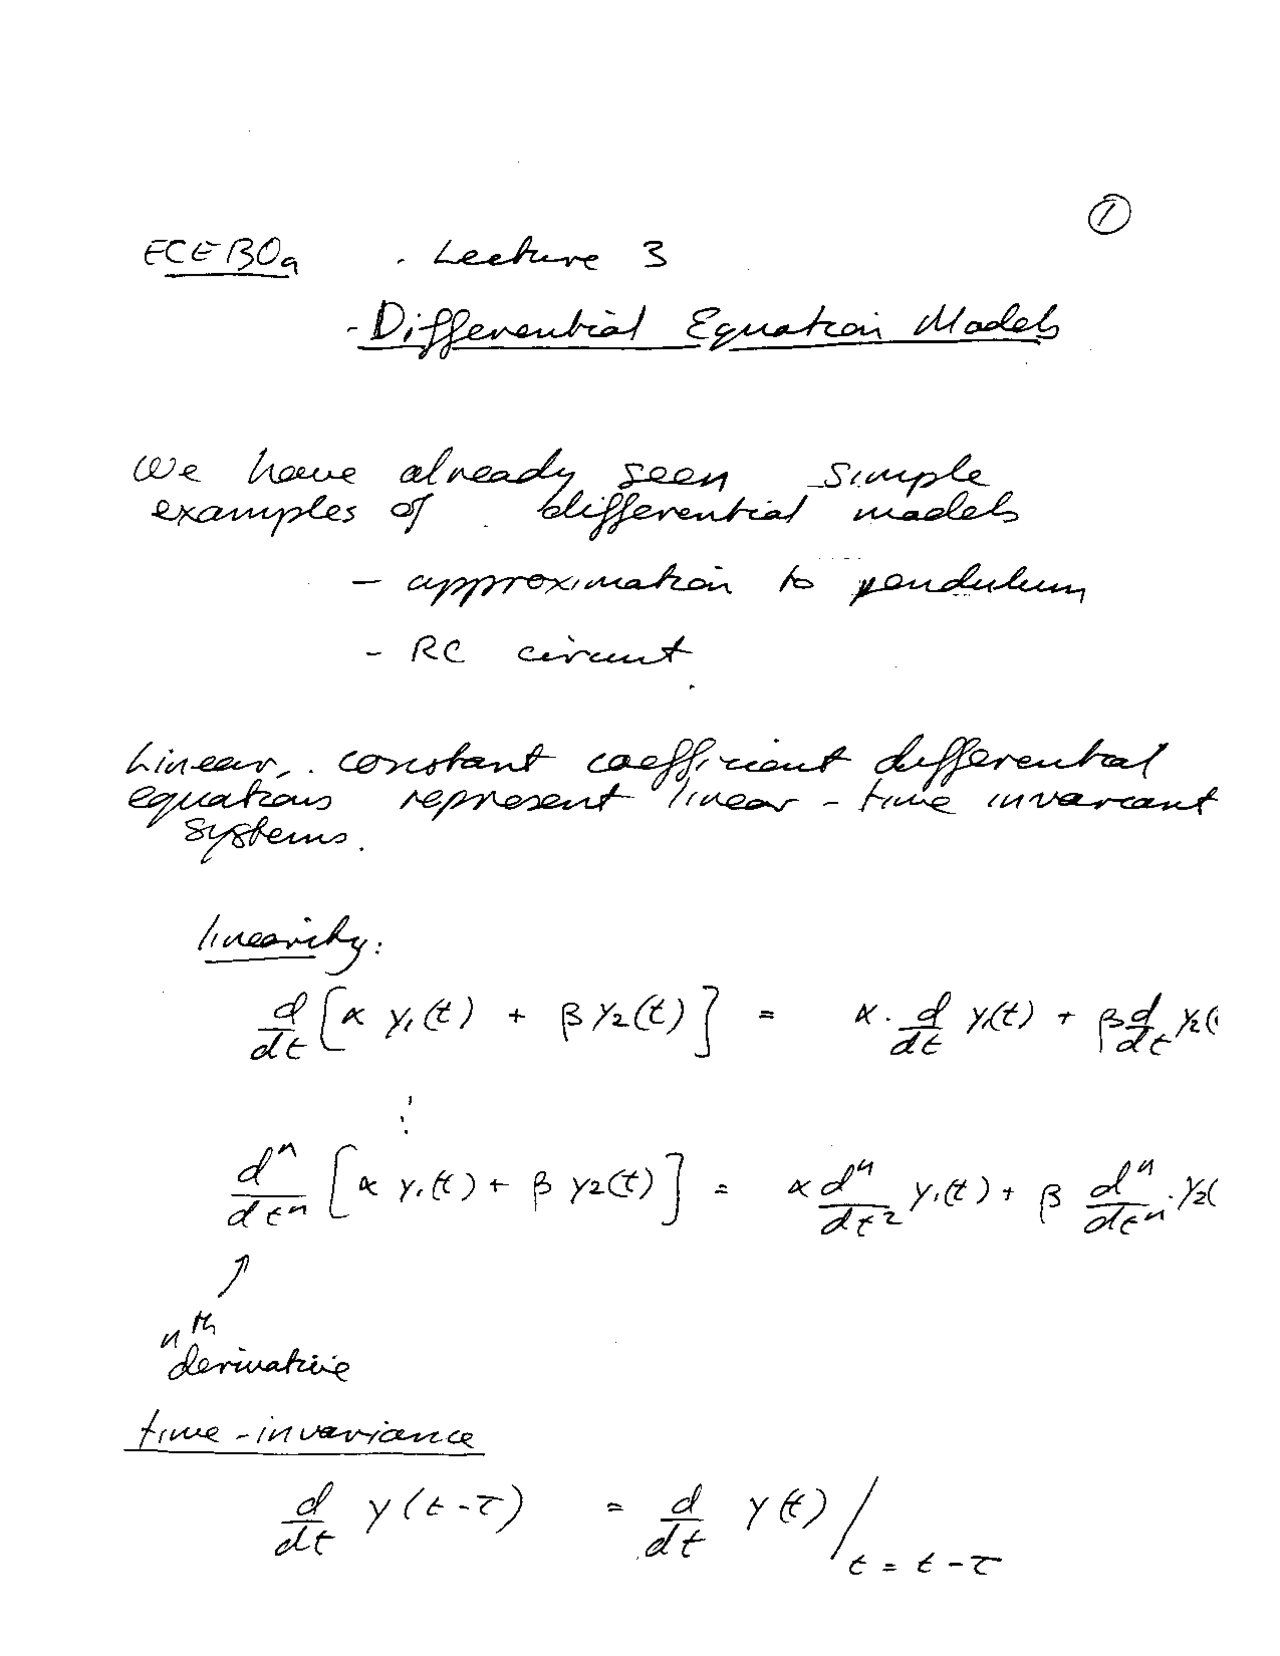 ①
ECE 130a . Lecture 3
- Differential Equation Models
We have already seen simple
examples of differential models
- approximation to pendulum
- RC circuit
Linear, constant coefficient differential
equations represent linear - time invariant
systems.
linearity:
d/dt [α y₁(t) + β y₂(t)] = α · d/dt y₁(t) + β d/dt y₂(
⋮
dⁿ/dtⁿ [α y₁(t) + β y₂(t)] = α dⁿ/dt² y₁(t) + β dⁿ/dtⁿ · y₂(
↗
nᵗʰ
derivative
time-invariance
d/dt y(t-τ) = d/dt y(t) /
t = t - τ